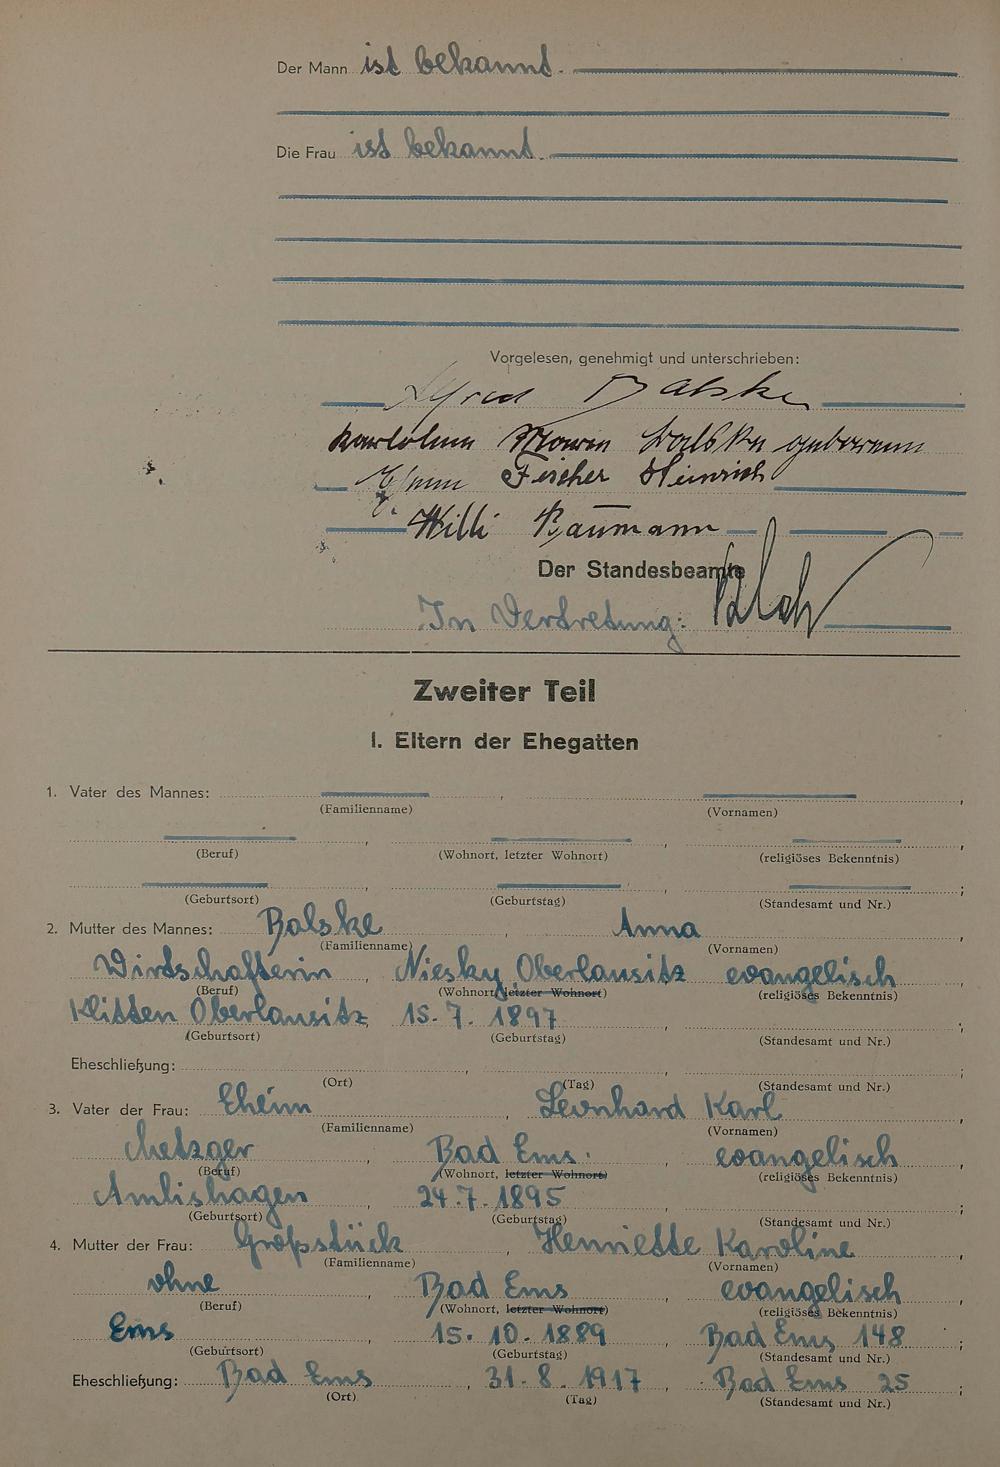 Der Mann ist bekannt.
Die Frau ist bekannt.
Vorgelesen, genehmigt und unterschrieben:
Alfred Balske
Maria Balske geborenen
Ehnim Fischer Heinrich
Willi Baumann
Der Standesbeamte
In Vertretung:
Zweiter Teil
I. Eltern der Ehegatten
1. Vater des Mannes:
(Familienname) (Vornamen)
(Beruf) (Wohnort, letzter Wohnort) (religiöses Bekenntnis)
(Geburtsort) (Geburtstag) (Standesamt und Nr.)
2. Mutter des Mannes: Balske, Anna
(Familienname) (Vornamen)
Wirtschafterin, Niesky Oberlausitz evangelisch
(Beruf) (Wohnort, letzter Wohnort) (religiöses Bekenntnis)
Klitten Oberlausitz, 15. 7. 1897
(Geburtsort) (Geburtstag) (Standesamt und Nr.)
Eheschließung:
(Ort) (Tag) (Standesamt und Nr.)
3. Vater der Frau: Ehnim, Leonhard Karl
(Familienname) (Vornamen)
Metzger, Bad Ems, evangelisch
(Beruf) (Wohnort, letzter Wohnort) (religiöses Bekenntnis)
Amlishagen, 24. 7. 1895
(Geburtsort) (Geburtstag) (Standesamt und Nr.)
4. Mutter der Frau: Großstück, Henriette Karoline
(Familienname) (Vornamen)
ohne, Bad Ems, evangelisch
(Beruf) (Wohnort, letzter Wohnort) (religiöses Bekenntnis)
Ems, 15. 10. 1889, Bad Ems 148;
(Geburtsort) (Geburtstag) (Standesamt und Nr.)
Eheschließung: Bad Ems, 31. 8. 1917, Bad Ems 25;
(Ort) (Tag) (Standesamt und Nr.)